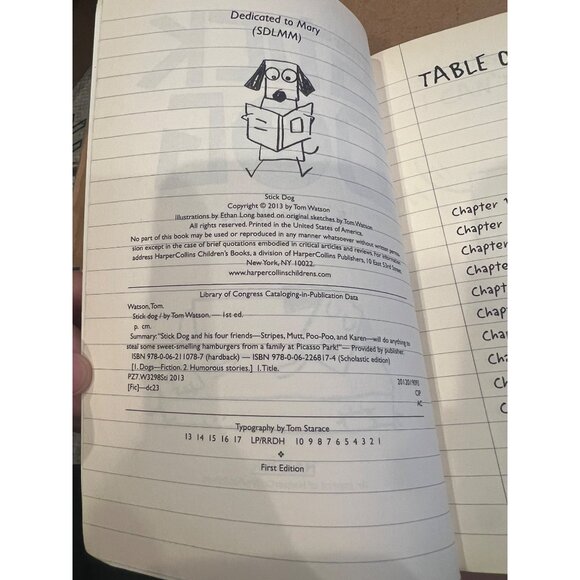 Dedicated to Mary
(SDLMM)
Stick Dog
Copyright © 2013 by Tom Watson
Illustrations by Ethan Long based on original sketches by Tom Watson
All rights reserved. Printed in the United States of America.
No part of this book may be used or reproduced in any manner whatsoever without written permis-
sion except in the case of brief quotations embodied in critical articles and reviews. For information
address HarperCollins Children's Books, a division of HarperCollins Publishers, 10 East 53rd Street,
New York, NY 10022.
www.harpercollinschildrens.com
Library of Congress Cataloging-in-Publication Data
Watson, Tom.
Stick dog / by Tom Watson. — 1st ed.
p. cm.
Summary: "Stick Dog and his four friends—Stripes, Mutt, Poo-Poo, and Karen—will do anything to
steal some sweet-smelling hamburgers from a family at Picasso Park!"— Provided by publisher.
ISBN 978-0-06-211078-7 (hardback) — ISBN 978-0-06-226817-4 (Scholastic edition)
[1. Dogs—Fiction. 2. Humorous stories.] I. Title.
PZ7.W3298Sti 2013
[Fic]—dc23
CIP
AC
Typography by Tom Starace
13 14 15 16 17 LP/RRDH 10 9 8 7 6 5 4 3 2 1
First Edition
TABLE O
Chapter
Chapter
Chapter
Chapter
Chapter
Chapter
Chapter
Chapter
Ch